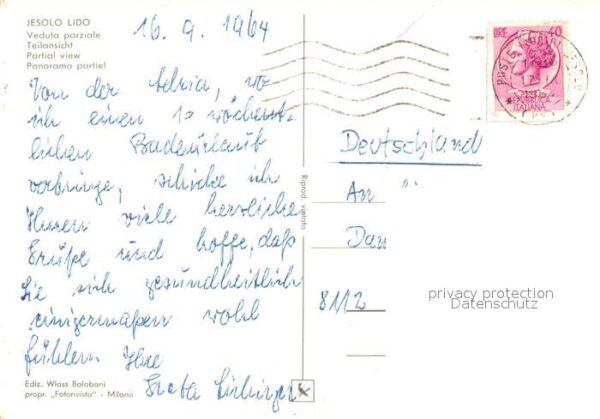 JESOLO LIDO
Veduta parziale
Teilansicht
Partial view
Panorama partiel
16. 9. 1964
Von der Adria, wo
ich einen 10 wöchent-
lichen Badeurlaub
verbringe, schicke ich
Ihnen viele herzliche
Grüße und hoffe, daß
Sie sich gesundheitlich
einigermaßen wohl
fühlen. Ihre
Ediz. Wlass Balobani
propr. „Fotorivista" - Milano
Riprod. vietata
LIRE 40
REPVBBLICA
ITALIANA
Deutschland
An
8112
privacy protection
Datenschutz